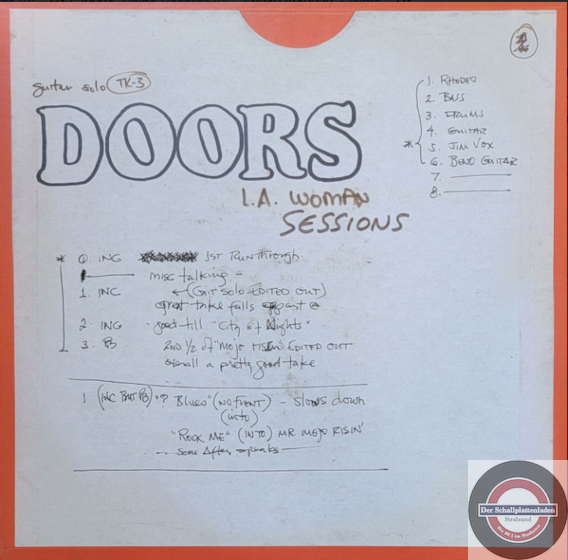 guitar solo TK-3
DOORS
L.A. WOMAN
SESSIONS
1. RHODES
2. BASS
3. DRUMS
4. GUITAR
* 5. JIM VOX
6. BEND GUITAR
7.
8.
* 0. ING 1ST RUN through
misc talking
1. INC (GIT SOLO EDITED OUT)
great take falls apart @
2. ING - good till "City at Nights"
3. PB 2ND 1/2 of "MOJO RISIN EDITED OUT
overall a pretty good take
1 (INC BUT PB) "? Blues" (NO FRONT) - Slows down
(into)
"ROCK ME" (INTO) MR. MOJO RISIN'
some After
Der Schallplattenladen
Stralsund